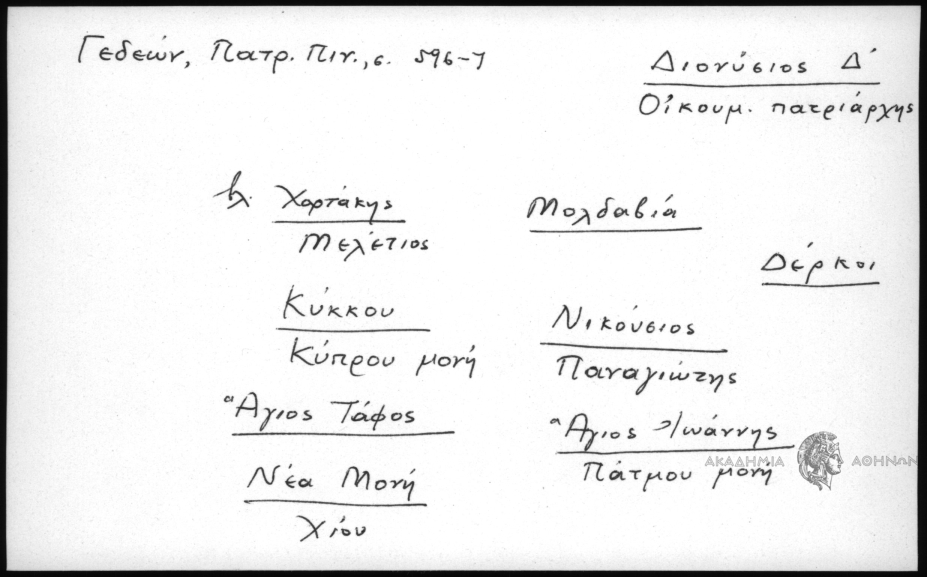 Γεδεών, Πατρ. Πιν., σ. 596-7
Διονύσιος Δ΄
Οἰκουμ. πατριάρχης
βλ. Χορτάκης
Μελέτιος
Μολδαβία
Δέρκοι
Κύκκου
Κύπρου μονή
Νικούσιος
Παναγιώτης
Ἅγιος Τάφος
Ἅγιος Ἰωάννης
Πάτμου μονή
Νέα Μονή
Χίου
ΑΚΑΔΗΜΙΑ ΑΘΗΝΩΝ